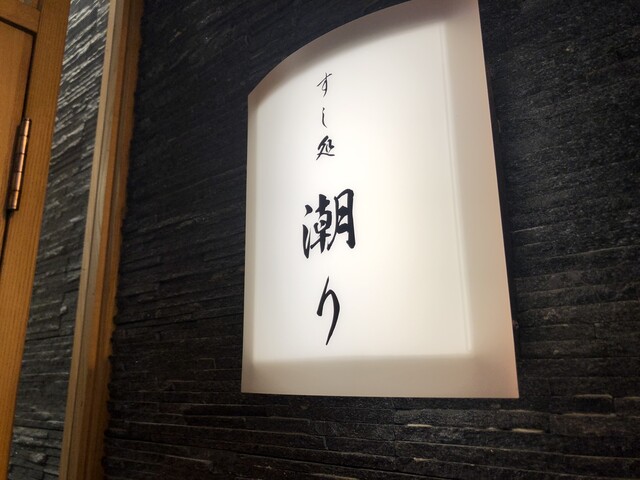 すし処
潮り